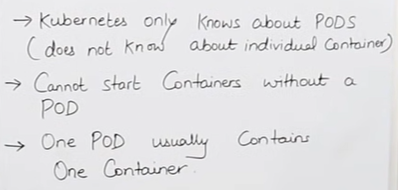 → Kubernetes only Knows about PODS
(does not Know about individual Container)
→ Cannot start Containers without a
POD
→ One POD usually Contains
One Container.